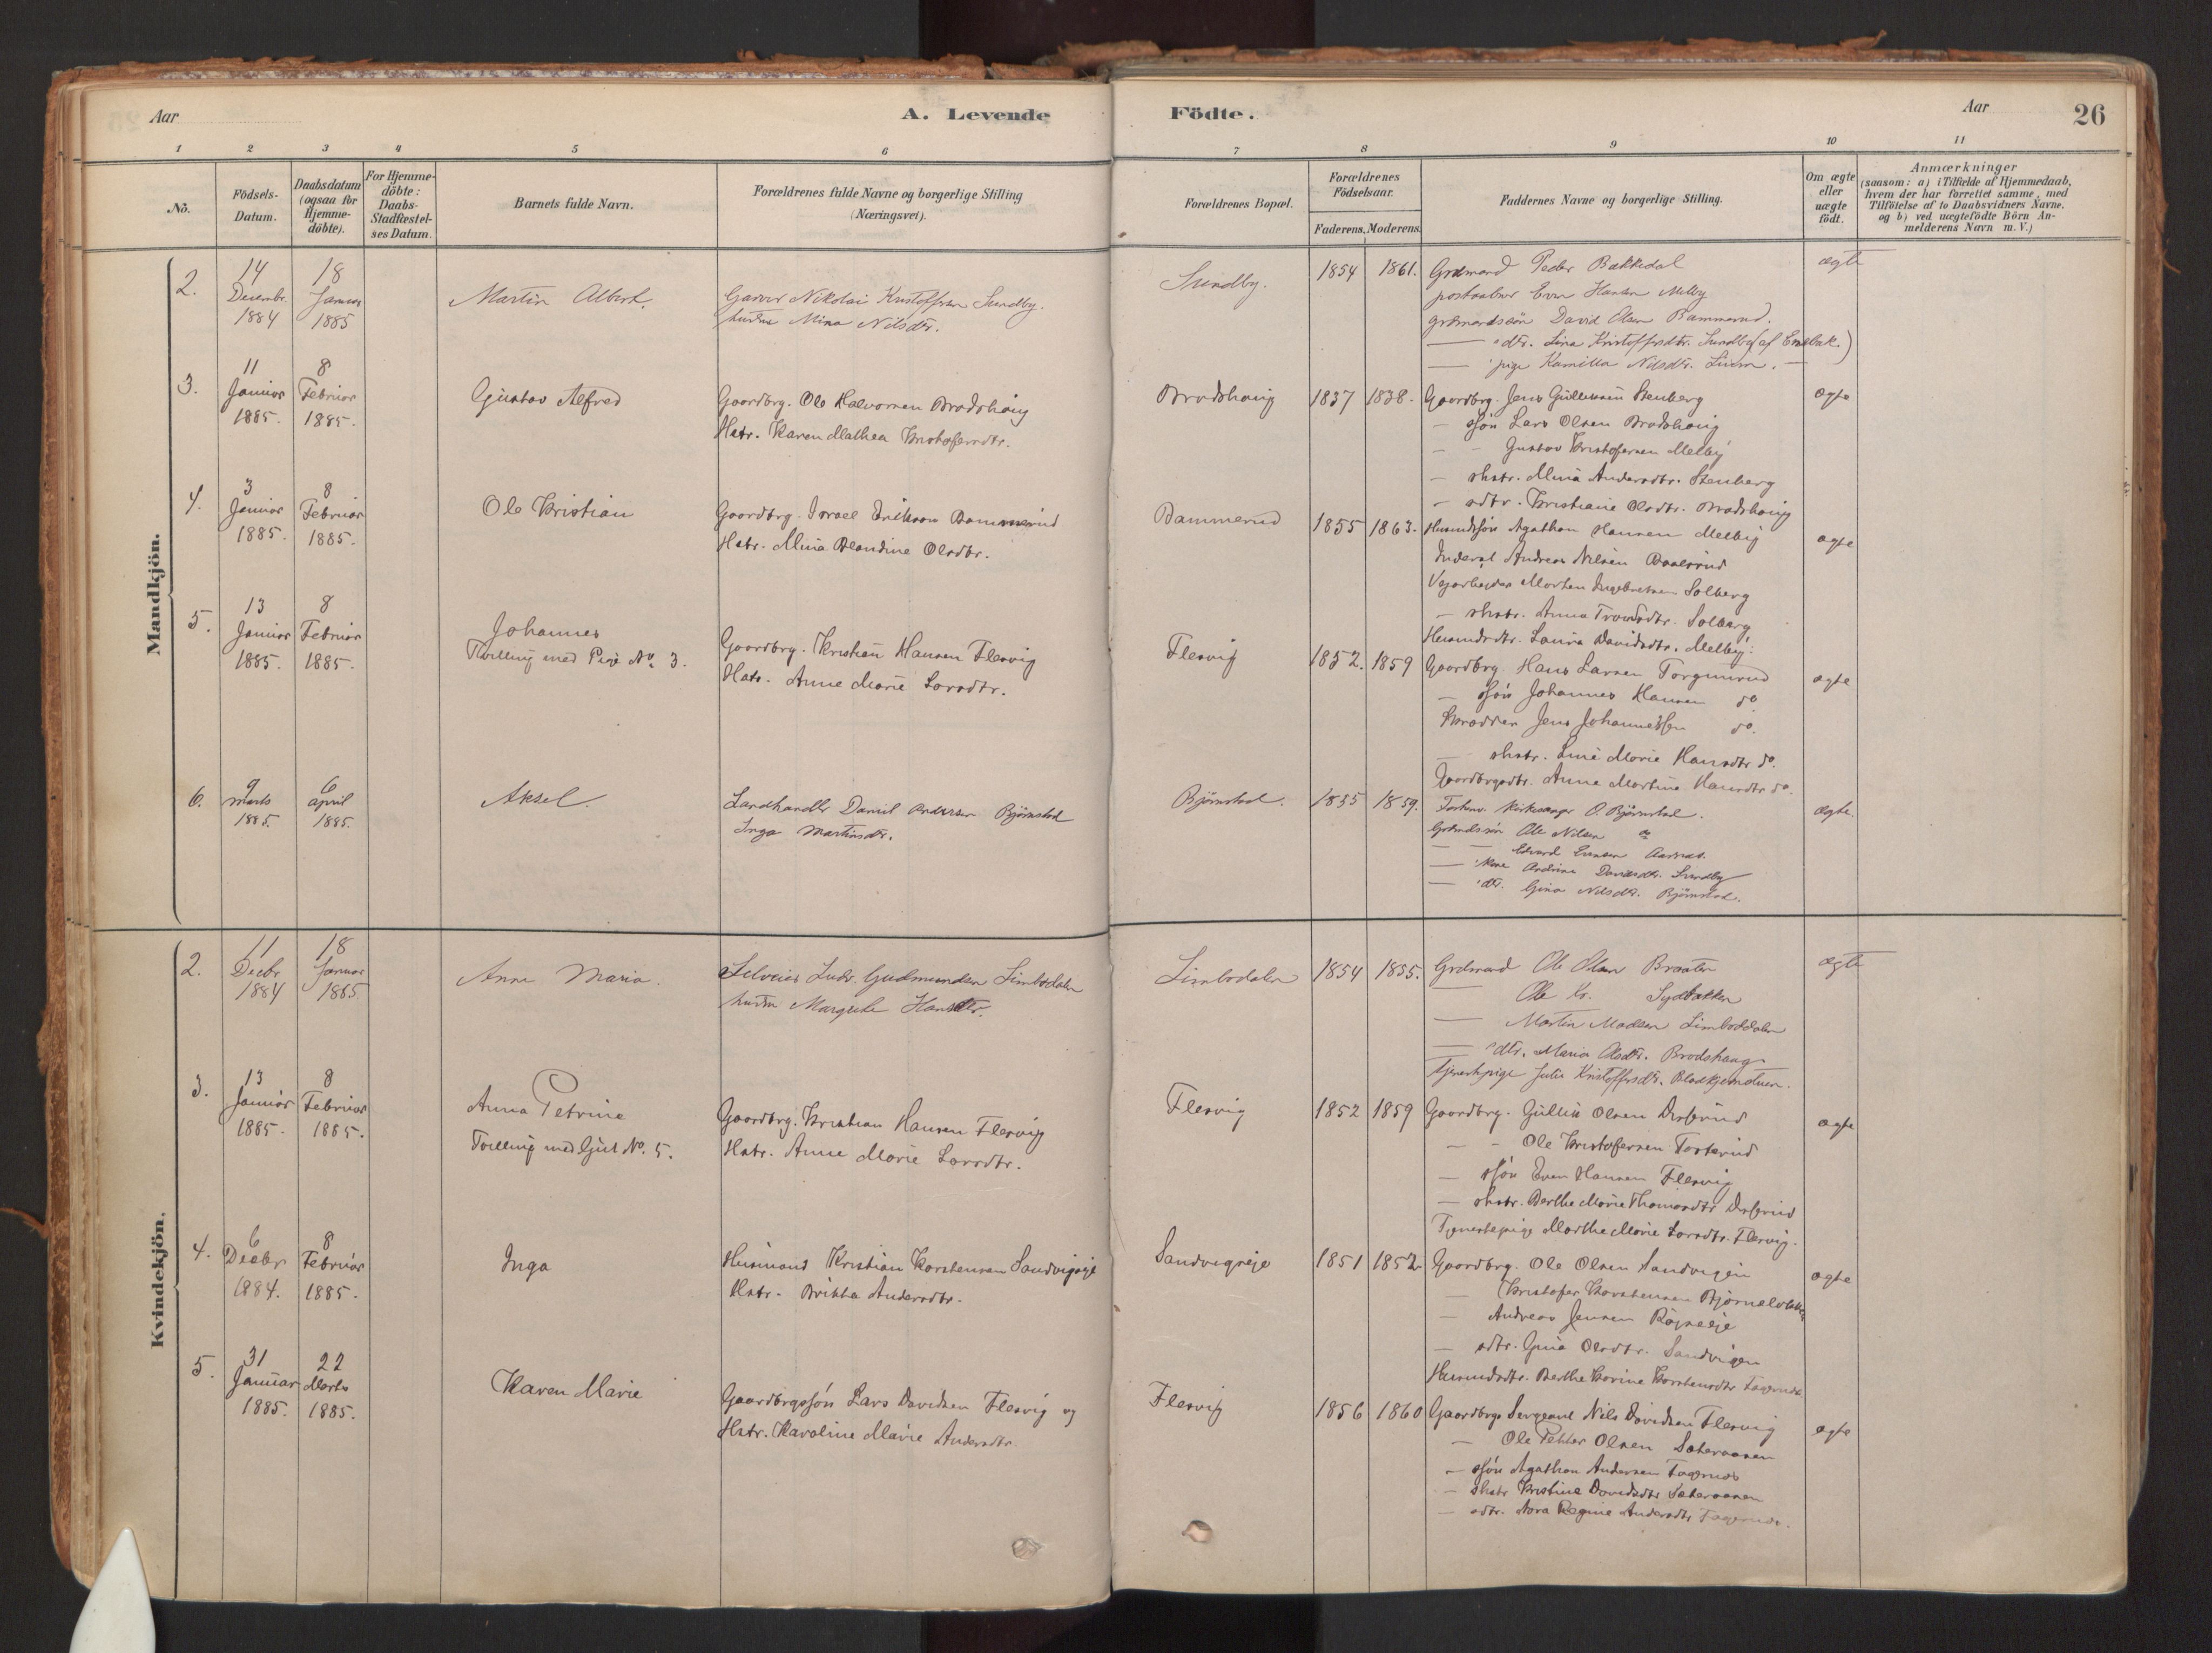 Aar
A. Levende
Födte.
Aar
26
1 2 3 4 5 6 7 8 9 10 11
No.
Födsels-Datum.
Daabsdatum (ogsaa for Hjemme-döbte).
For Hjemme-döbte: Daabs-Stadfæstel-ses Datum.
Barnets fulde Navn.
Forældrenes fulde Navne og borgerlige Stilling
(Næringsvei).
Forældrenes Bopæl.
Forældrenes Födselsaar.
Faderens. Moderens.
Faddernes Navne og borgerlige Stilling.
Om ægte eller uægte födt.
Anmærkninger
(saasom: a) i Tilfælde af Hjemmedaab,
hvem der har forrettet samme, med
Tilföielse af to Daabsvidners Navne.
og b) ved uægtefödte Börn An-
melderens Navn m. V.)
Mandkjön.
2. 14 Decembr. 1884 18 Januar 1885
Martin Albert.
Garver Nikolai Kristoffersen Sundby.
hustru Mina Nilsdtr.
Sundby. 1854 1861.
Grdmand Peder Bakkedal
postaabner Even Hansen Melby
grdmandssön David Olsen Bammerud.
— dtr. Lina Kristoffrsdtr. Sundby (af Enebak.)
— pige Kamilla Nilsdtr.
ægte
3. 11 Januar 1885. 8 Februar 1885.
Gustav Alfred
Gaardbrg. Ole Halvorsen Brodshaug
Hstr. Karen Mathea Kristofersdtr.
Brodshaug 1837 1838.
Gaardbrg. Jens Gullerssen Stenberg
— sön Lars Olsen Brodshaug
— - Gustav Kristofersen Melby
— shstr. Mina Andersdtr. Stenberg
— sdtr. Kristiane Olsdtr. Brodshaug
ægte
4. 3 Januar 1885. 8 Februar 1885.
Ole Kristian
Gaardbrg. Israel Eriksen Bammerud
Hstr. Mina Blandine Olsdtr.
Bammerud 1855 1863.
Husmdssön Agathon Hansen Melby
Inderst Andreas Nilsen
Vejarbejder Morten Ingebretsen Solberg
— shstr. Anna Solberg
Husmdsdtr. Laura Davidsdtr. Melby.
ægte
5. 13 Januar 1885. 8 Februar 1885.
Johannes
Tvilling med Pige No. 3.
Gaardbrg. Kristian Hansen Flesvig
Hstr. Anne Marie Larsdtr.
Flesvig 1852. 1859
Gaardbrg. Hans Larsen Torgunrud
— sön Johannes Hansen do
Jens Johannessen do.
— shstr. Marie Hansdtr do.
Gaardbrgsdtr. Anne Martine Hansdtr do.
ægte
6. 9 marts 1885. 6 april 1885.
Aksel.
Landhandler Daniel Andersen Björnstad
Inga Martinsdtr.
Björnstad. 1855 1859.
Kirkesanger O. Björnstad.
Grdmdssön Ole Nilsen do
— — Edvard Evensen Aarnes.
— kone Andrine Davidsdtr. Sundby
— dtr. Gina Nilsdtr. Björnstad.
ægte.
Kvindekjön.
2. 11 Decbr 1884 18 Januar 1885
Anne Maria.
Selveier Ludv. Gudmundsen Limbodalen
hustru Margrethe Hansdtr.
Limbodalen 1854 1855.
Grdmand Ole Olsen Braaten
— Ole Kr. Sydbakken
— Martin Madsen Limboddalen
— dtr. Maria Olsdtr. Brodshaug
tjenestpige Julie Kristoffrsdtr. Blodkjendtuen.
ægte
3. 13 Januar 1885. 8 Februar 1885.
Anna Petrine
Tvilling med Gut No. 5.
Gaardbrg. Kristian Hansen Flesvig
Hstr. Anne Marie Larsdtr.
Flesvig 1852 1859
Gaardbrg. Gullik Olsen
— - Ole Kristofersen Tosterud
— sön Even Hansen Flesvig
— shstr. Berthe Marie Thomasdtr
Tjenestepige Marthe Marie Larsdtr. Flesvig.
ægte
4. 6 Decbr 1884. 8 Februar 1885.
Inga
Husmand Kristian Karstensen Sandvigseje
Hstr. Britha Andersdtr.
Sandvigseje 1851 1852
Gaardbrg. Ole Olsen Sandvigen
— Kristofer Karstensen
— Andreas Jensen Röjseeje
— sdtr. Gina Olsdtr. Sandvigen
Husmdsdtr. Berthe Karine Karstensdtr
ægte
5. 31 Januar 1885. 22 Marts 1885.
Karen Marie
Gaardbrgssön Lars Davidsen Flesvig og
Hstr. Karoline Marie Andersdtr.
Flesvig 1856 1860
Gaardbrgs Sergeant Nils Davidsen Flesvig
— Ole Petter Olsen Sæteraasen
— sön Agathon Andersen Fagernes
— shstr Kristine Davidsdtr Sæteraasen
— sdtr. Nora Regine Andersdtr Fagernes.
ægte